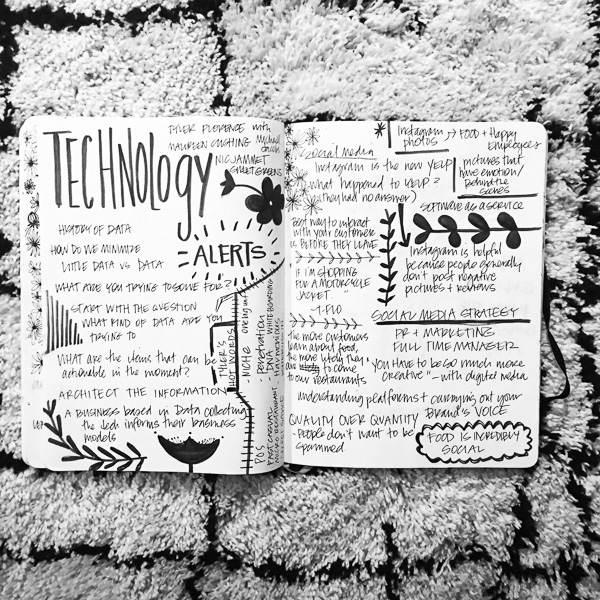 TECHNOLOGY
TYLER FLORENCE with
MAUREEN CUSHING Michael
NIC JAMMET
SWEETGREENS
ALERTS
HISTORY OF DATA
HOW DO WE MINIMIZE
LITTLE DATA VS DATA
WHAT ARE YOU TRYING TO SOLVE FOR?
START WITH THE QUESTION
WHAT KIND OF DATA ARE YOU
TRYING TO
WHAT ARE THE items THAT can be
actionable in the moment?
ARCHITECT THE INFORMATION
A BUSINESS based in Data collecting
the tech informs their business
models
TYLER'S
HOT WORDS
NICHE
- Penetration
- DNA
WHITE BOARDING
POS
FAST CASUAL
MICRO RESTAURANT
HARMONIOUS
social media
Instagram is the new YELP
what happened to YELP?
(they had no answer)
Instagram
photos
→ FOOD + Happy
Employees
pictures that
have emotion/
behind the
scenes
SOFTWARE AS A SERVICE
Best way to interact
with your customers
is BEFORE THEY LEAVE
"IF I'M SHOPPING
FOR A MOTORCYCLE
JACKET..."
-T. FLO
the more customers
learn about food,
the more likely they
are to come
to our restaurants
Instagram is helpful
because people generally
don't post negative
pictures + reviews
SOCIAL MEDIA STRATEGY
PR + MARKETING
FULL TIME MANAGER
"YOU HAVE TO BE SO much more
creative" - with digital media
understanding platforms + carrying out your
Brand's VOICE
QUALITY OVER QUANTITY
- People don't want to be
spammed
FOOD IS INCREDIBLY
SOCIAL